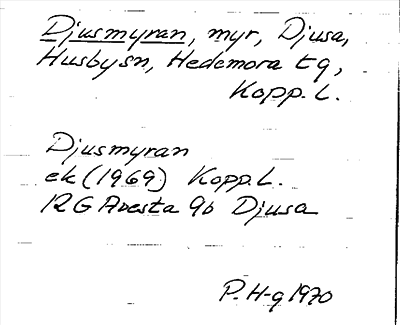 Djusmyran, myr, Djusa,
Husby sn, Hedemora tg,
Kopp. L.
Djusmyran
ek (1969) Kopp. L.
12G Avesta 9b Djusa
P. H-g 1970